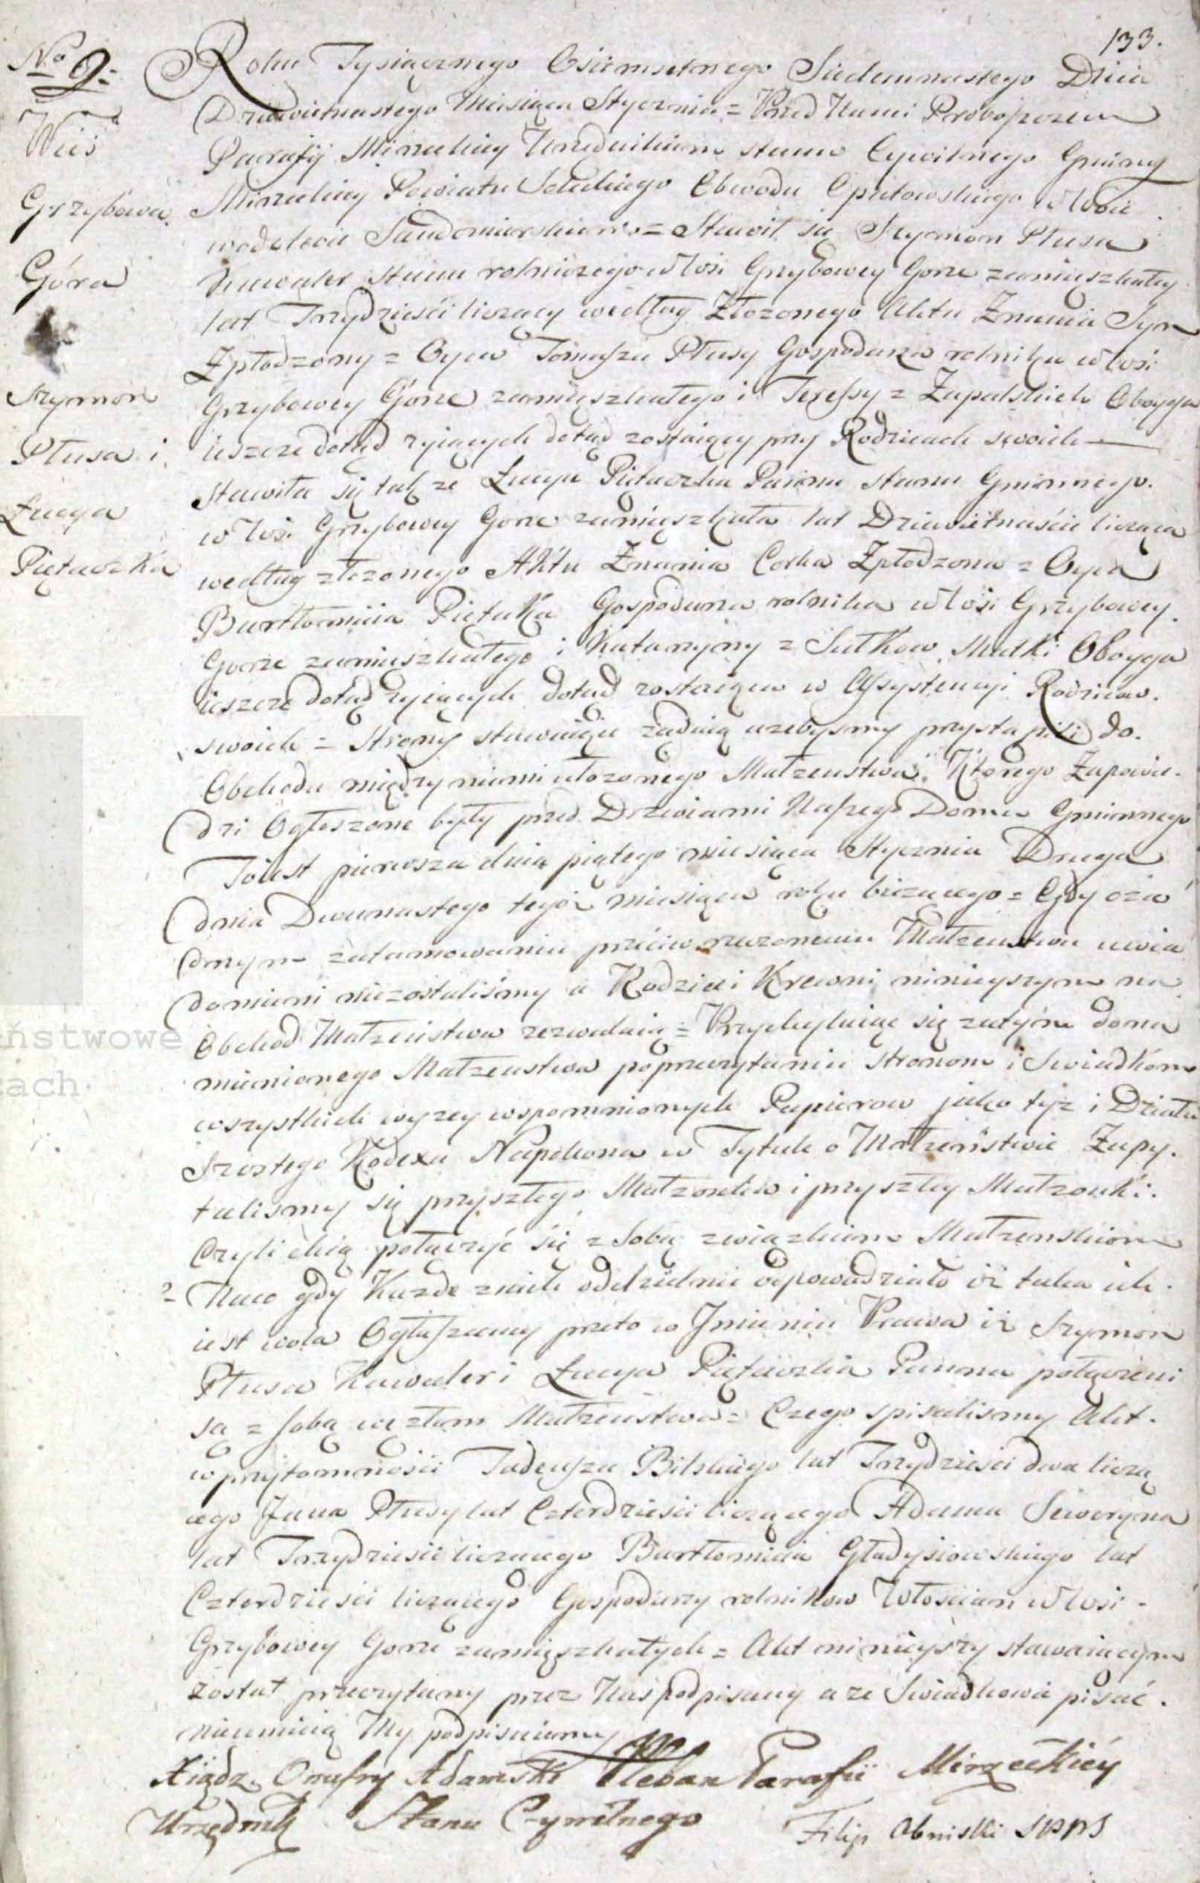 133.
No 9.
Wieś
Grzybowa
Góra
Szymon
Płusa i
Łucya
Piętaczka
Roku Tysiącznego Osiemsetnego Siedemnastego Dnia
Dziewietnastego Miesiąca Stycznia = Przed Nami Proboszczem
Parafij Mirzeckiey Urzędnikiem stanu Cywilnego Gminy
Mirzeckiey Powiatu Soleckiego Obwodu Opatowskiego w Woie
wodztwie Sandomirskiem = Stawił się Szymon Płusa
Kawaler stanu rolniczego w Wsi Grzybowey Gorze zamieszkały
lat Trzydzieści liczący według Złozonego Aktu Znania Syn
Zpłodzony z Oyca Tomasza Płusy Gospodarza rolnika w Wsi
Grzybowey Górze zamięszkałego i Teressy z Zapalskich Oboyga
ieszcze dotąd zyiących dotąd zostaiący przy Rodzicach swoich
Stawiła się także Łucya Piętaczka Panna stanu Gminnego
w Wsi Grzybowey Gorze zamięszkała lat Dziewiętnaście licząca
według złozonego Aktu Znania Corka Zpłodzona z Oyca
Bartłomieia Piętaka Gospodarza rolnika w Wsi Grzybowey
Gorze zamieszkałego i Katarzyny z Sutkow Matki Oboyga
ieszcze dotąd zyiących dotąd zostaiąca w Assystencyi Rodzicow
swoich = Strony stawaiące ządaią azebysmy przystąpili do
Obchodu między niemi ułozonego Małzenstwa, Którego Zapowie-
dzi Ogłoszone były przed Drzwiami Naszego Domu Gminnego
To iest pierwsza dnia piątego miesiąca Stycznia Druga
dnia Dwunastego tegóż miesiąca roku biezącego = Gdy oża
dnym zatamowaniu przeciw rzeczonemu Małzenstwu uwia
domieni niezostaliśmy a Rodzice i Krewni ninieyszym na
Obchód Małzeństwa zezwalaią = Przychylaiąc się zatym do na
mienionego Małzenstwa poprzeczytaniu stronom i Swiadkom
wszystkich wyzey wspomnionych Papierow jako tyz i Działu
Szostego Kodexu Napoleona w Tytule o Małzeństwie Zapy
taliśmy się przyszłego Małzonka i przyszłey Małzonki
Czyli chcą połączyć się z Sobą związkiem Małzenskiem
Naco gdy Kazde znich oddzielnie odpowiedziało iż taka ich
iest wola Ogłaszamy przeto w Jmieniu Prawa iż Szymon
Płusa Kawaler i Łucya Piętaczka Panna połączeni
są z sobą węzłem Małzeństwa = Czego spisalismy Akt
w przytomności Tadeusza Bilskiego lat Trzydzieści dwa liczą
cego Jana Płusy lat Czterdzieści liczącego Adama Seweryna
lat Trzydzieści liczącego Bartłomieia Gładysiowskiego lat
Czterdziesci liczącego Gospodarzy rolnikow Włościan w Wsi
Grzybowey Gorze zamięszkałych = Akt ninieyszy stawaiącym
został przeczytany przez Nas podpisany a ze Swiadkowie pisać
nieumieią My podpisuiemy
Xiądz Onufry Adamski Pleban Parafii Mirzeckiéy
Urzędnik Stanu Cywilnego
Filip Obniski